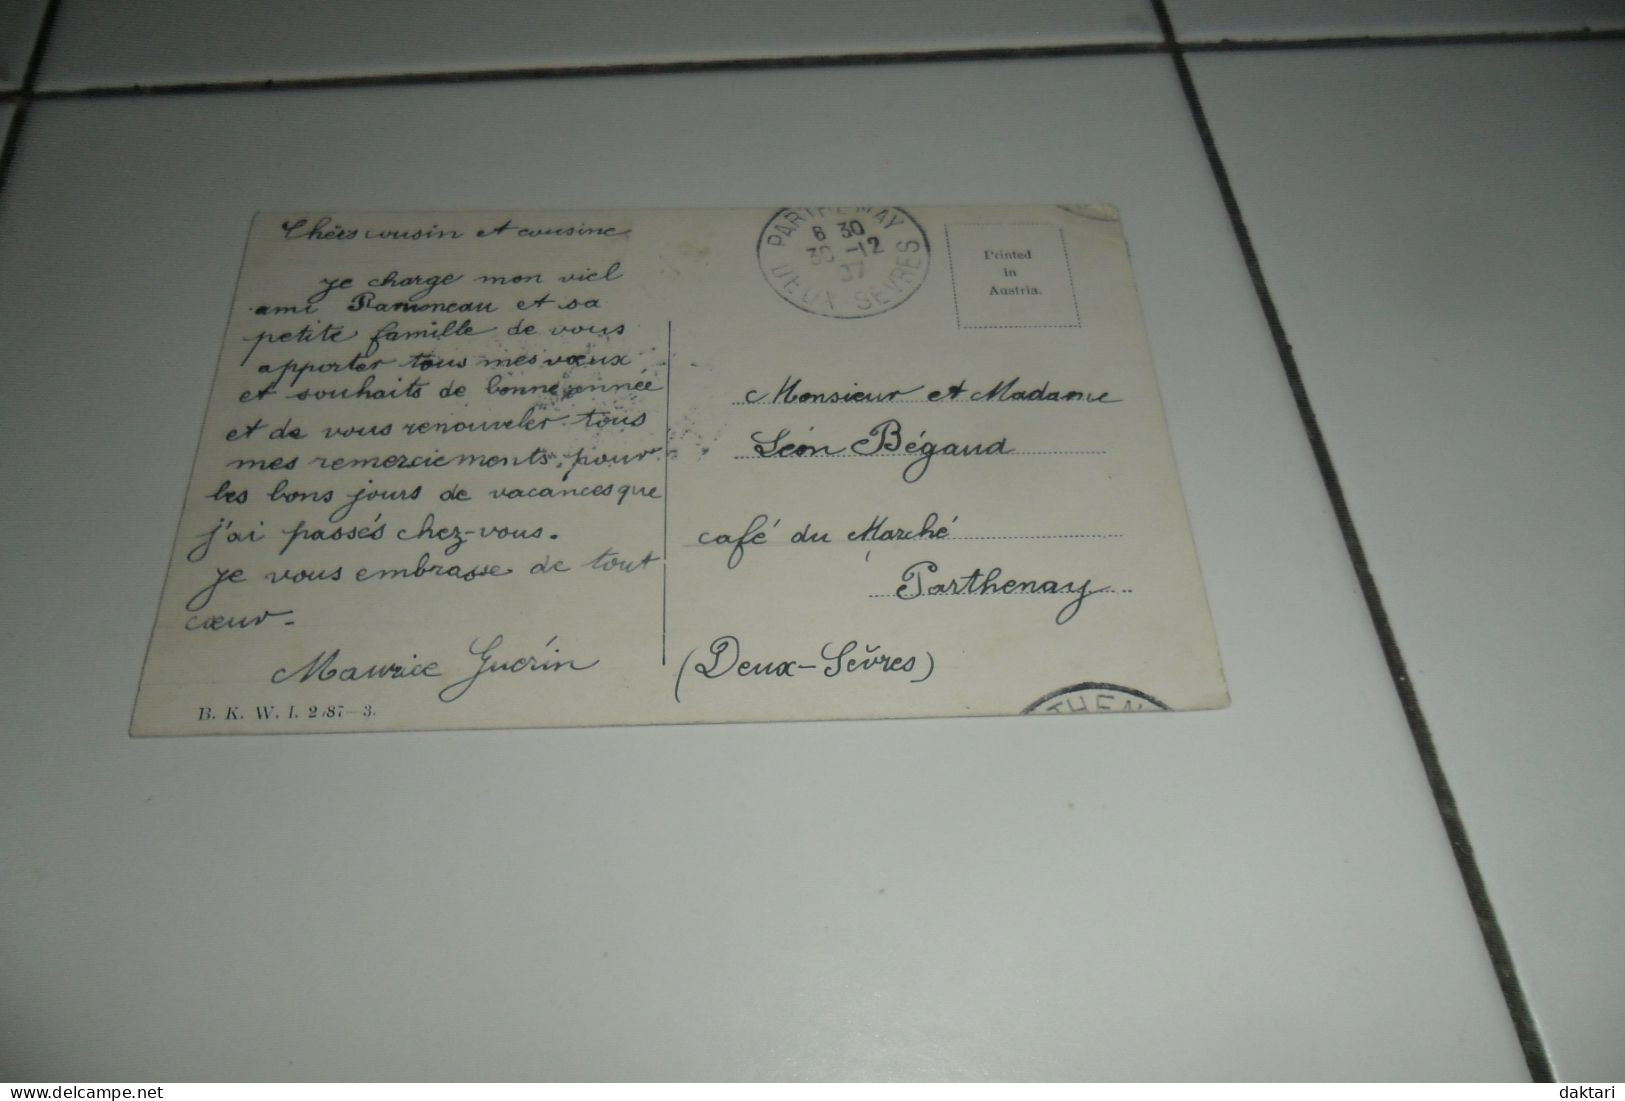 Chers cousin et cousine
je charge mon viel
ami Ramoneau et sa
petite famille de vous
apporter tous mes vœux
et souhaits de bonne année
et de vous renouveler tous
mes remerciements pour
les bons jours de vacances que
j'ai passés chez-vous.
je vous embrasse de tout
cœur -
Maurice Guérin
B. K. W. I. 2787-3.
PARTHENAY
6 30
30 -12
37
DEUX-SÈVRES
Printed
in
Austria.
Monsieur et Madame
Léon Bégaud
café du Marché
Parthenay
(Deux-Sèvres)
THEN
delcampe.net
daktari